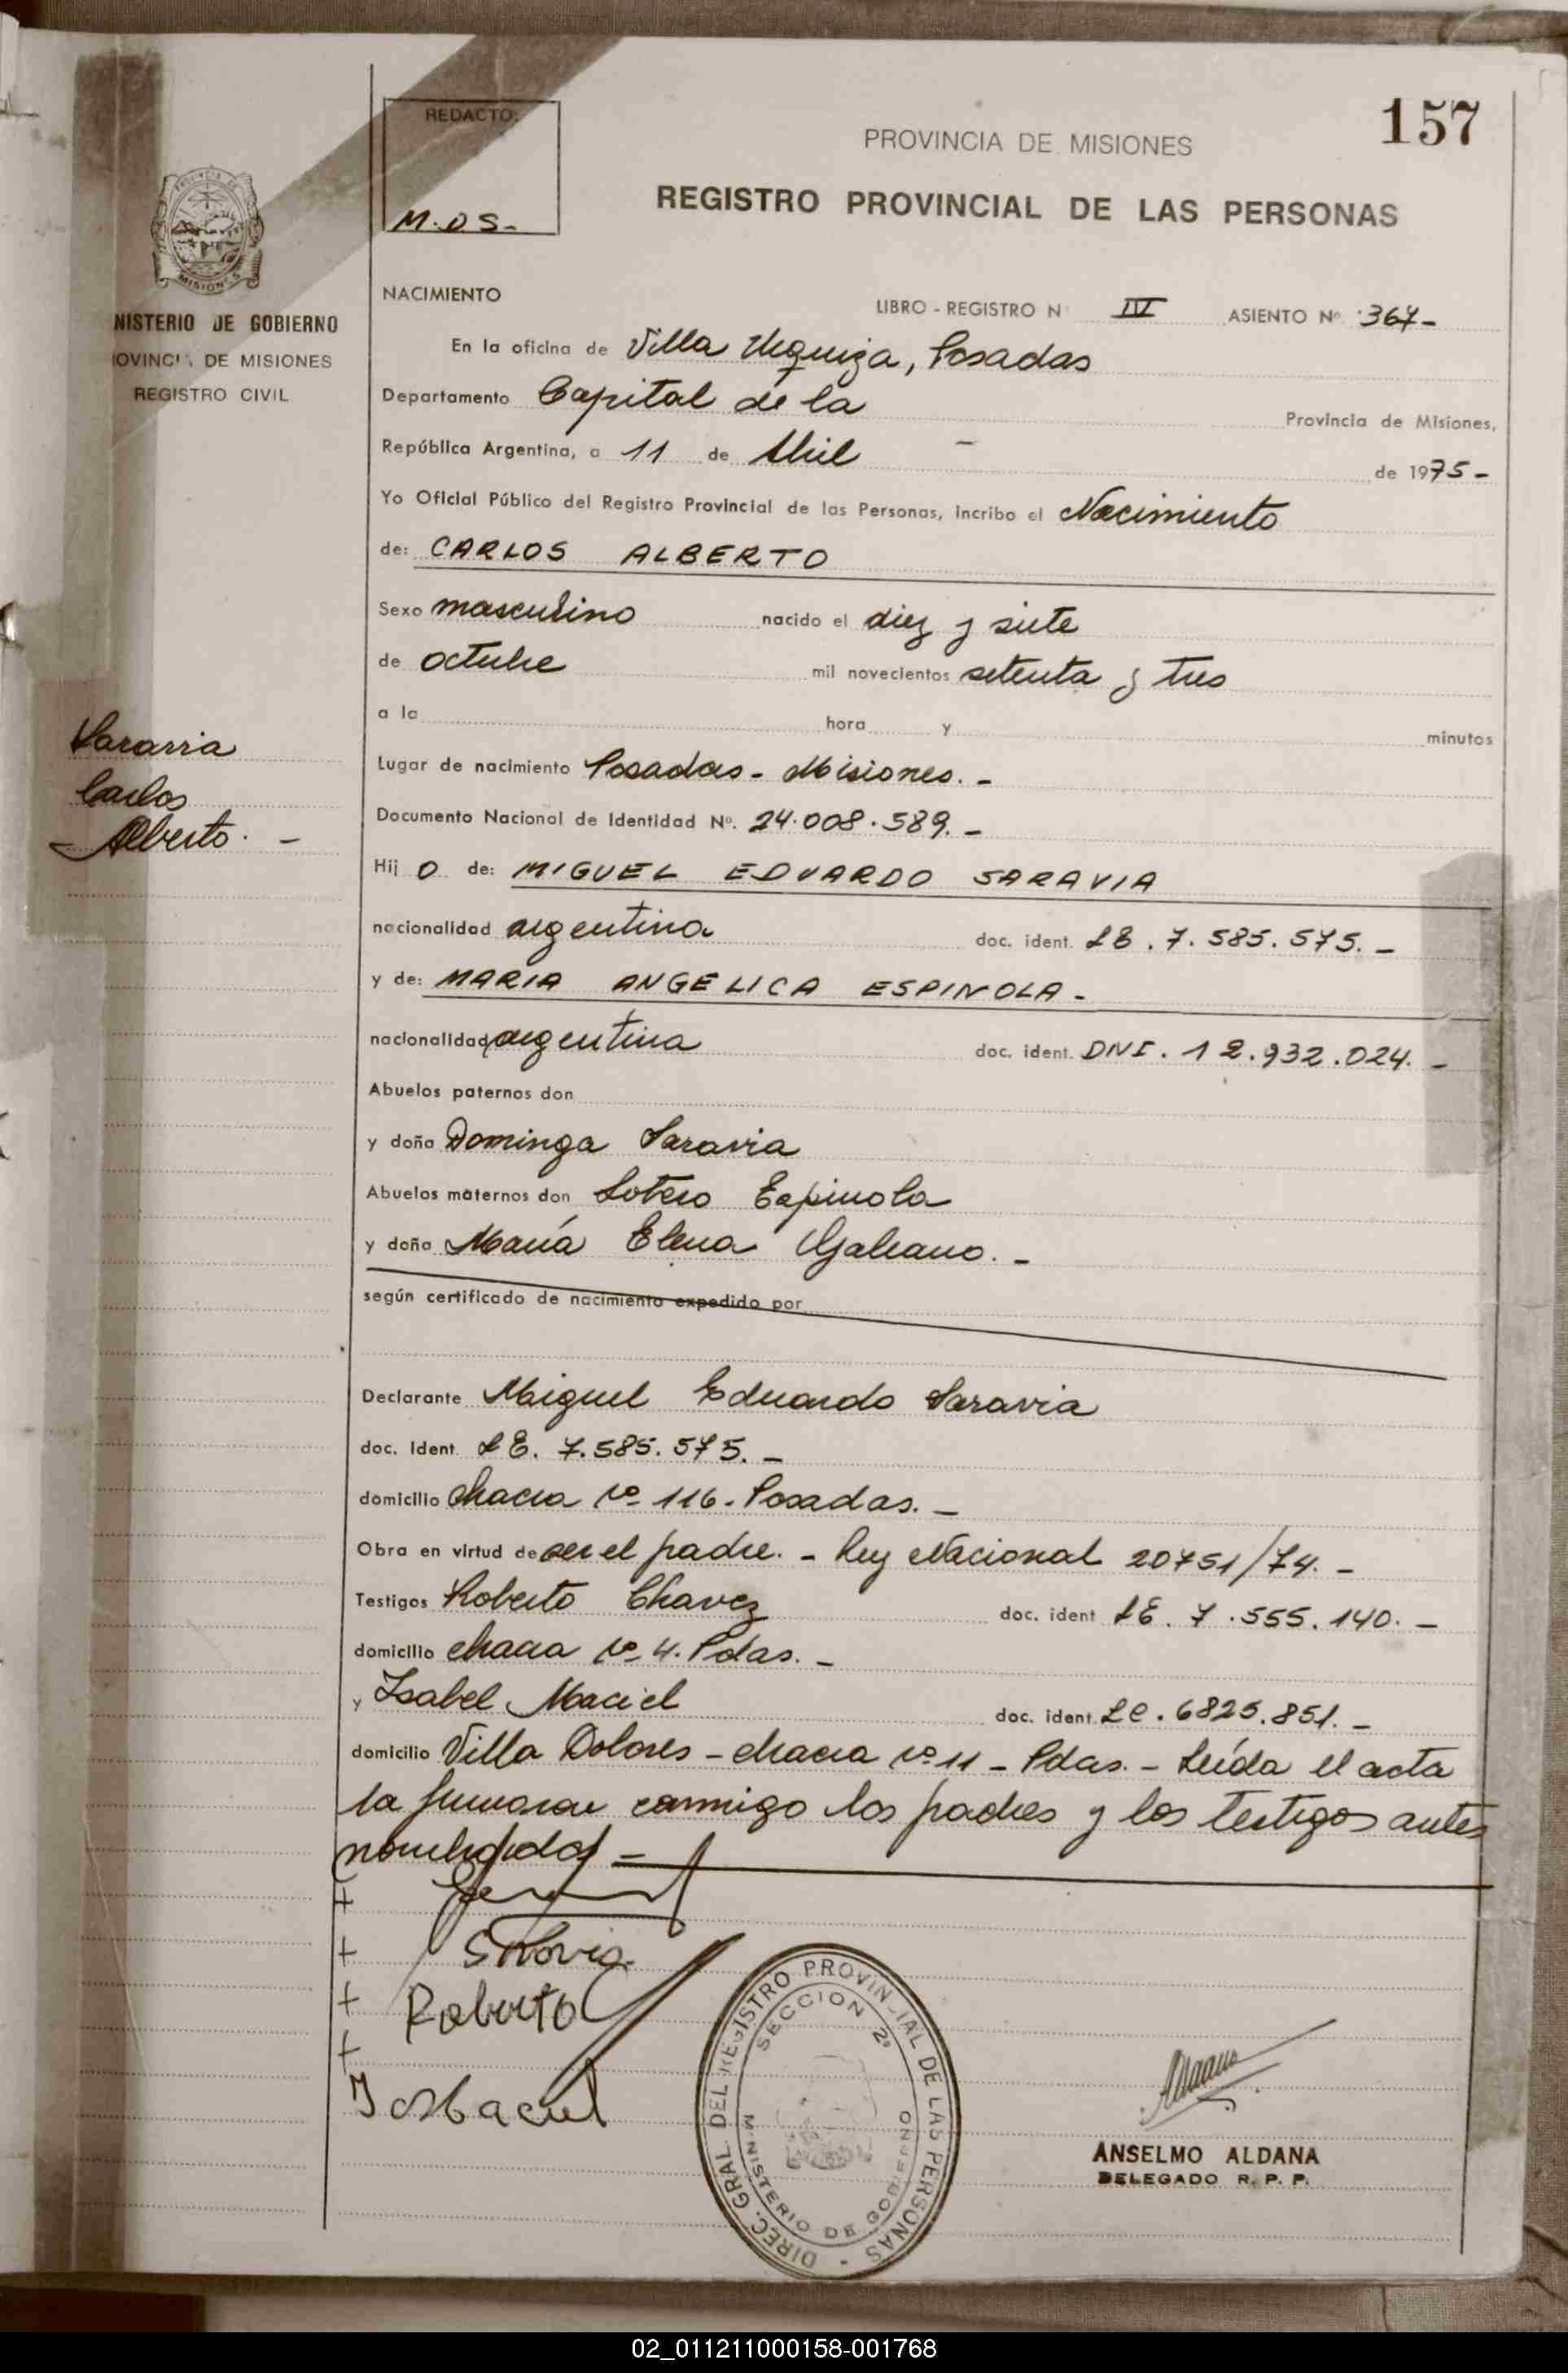 157
REDACTO:
M.D.S-
PROVINCIA DE MISIONES
REGISTRO PROVINCIAL DE LAS PERSONAS
PROVINCIA DE
MISIONES
NISTERIO DE GOBIERNO
OVINCIA DE MISIONES
REGISTRO CIVIL
NACIMIENTO
LIBRO - REGISTRO N° IV ASIENTO Nº 367-
En la oficina de Villa Urquiza, Posadas
Departamento Capital de la Provincia de Misiones,
República Argentina, a 11 de Abril - de 1975-
Yo Oficial Público del Registro Provincial de las Personas, incribo el Nacimiento
de: CARLOS ALBERTO
Sexo masculino nacido el diez y siete
de octubre mil novecientos setenta y tres
a la hora y minutos
Saravia
Carlos
- Alberto. -
Lugar de nacimiento Posadas - Misiones. -
Documento Nacional de Identidad Nº. 24.008.589. -
Hij o de: MIGUEL EDUARDO SARAVIA
nacionalidad argentina doc. ident. LE. 7.585.575. -
y de: MARIA ANGELICA ESPINOLA -
nacionalidad argentina doc. ident. DNI. 12.932.024. -
Abuelos paternos don
y doña Dominga Saravia
Abuelos maternos don Sotero Espinola
y doña María Elena Galeano. -
según certificado de nacimiento expedido por
Declarante Miguel Eduardo Saravia
doc. Ident. LE. 7.585.575. -
domicilio chacra nº 116 - Posadas. -
Obra en virtud de ser el padre. - Ley Nacional 20751/74. -
Testigos Roberto Chavez doc. ident LE. 7.555.140. -
domicilio chacra nº 4. Pdas. -
y Isabel Maciel doc. ident. LC. 6825.851. -
domicilio Villa Dolores - chacra nº 11 - Pdas. - Leída el acta
la firmaron conmigo los padres y los testigos antes
nombrados =
Saravia
Roberto
DIREC. GRAL. DEL REGISTRO PROVINCIAL DE LAS PERSONAS -
SECCION 2º
MINISTERIO DE GOBIERNO
ANSELMO ALDANA
DELEGADO R. P. P.
02_011211000158-001768